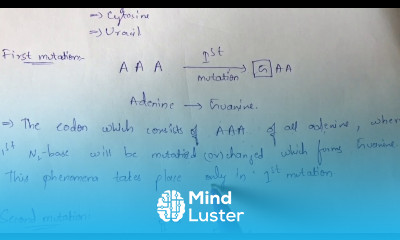 ⇒ Cytosine
⇒ Uracil
First mutation:-
A A A 1st mutation G A A
Adenine → Guanine.
⇒ The codon which consists of AAA of all adenine, when
1st N2-base will be mutated (or) changed which forms Guanine.
This phenomena takes place only in 1st mutation
Second mutation:-
Mind
Luster